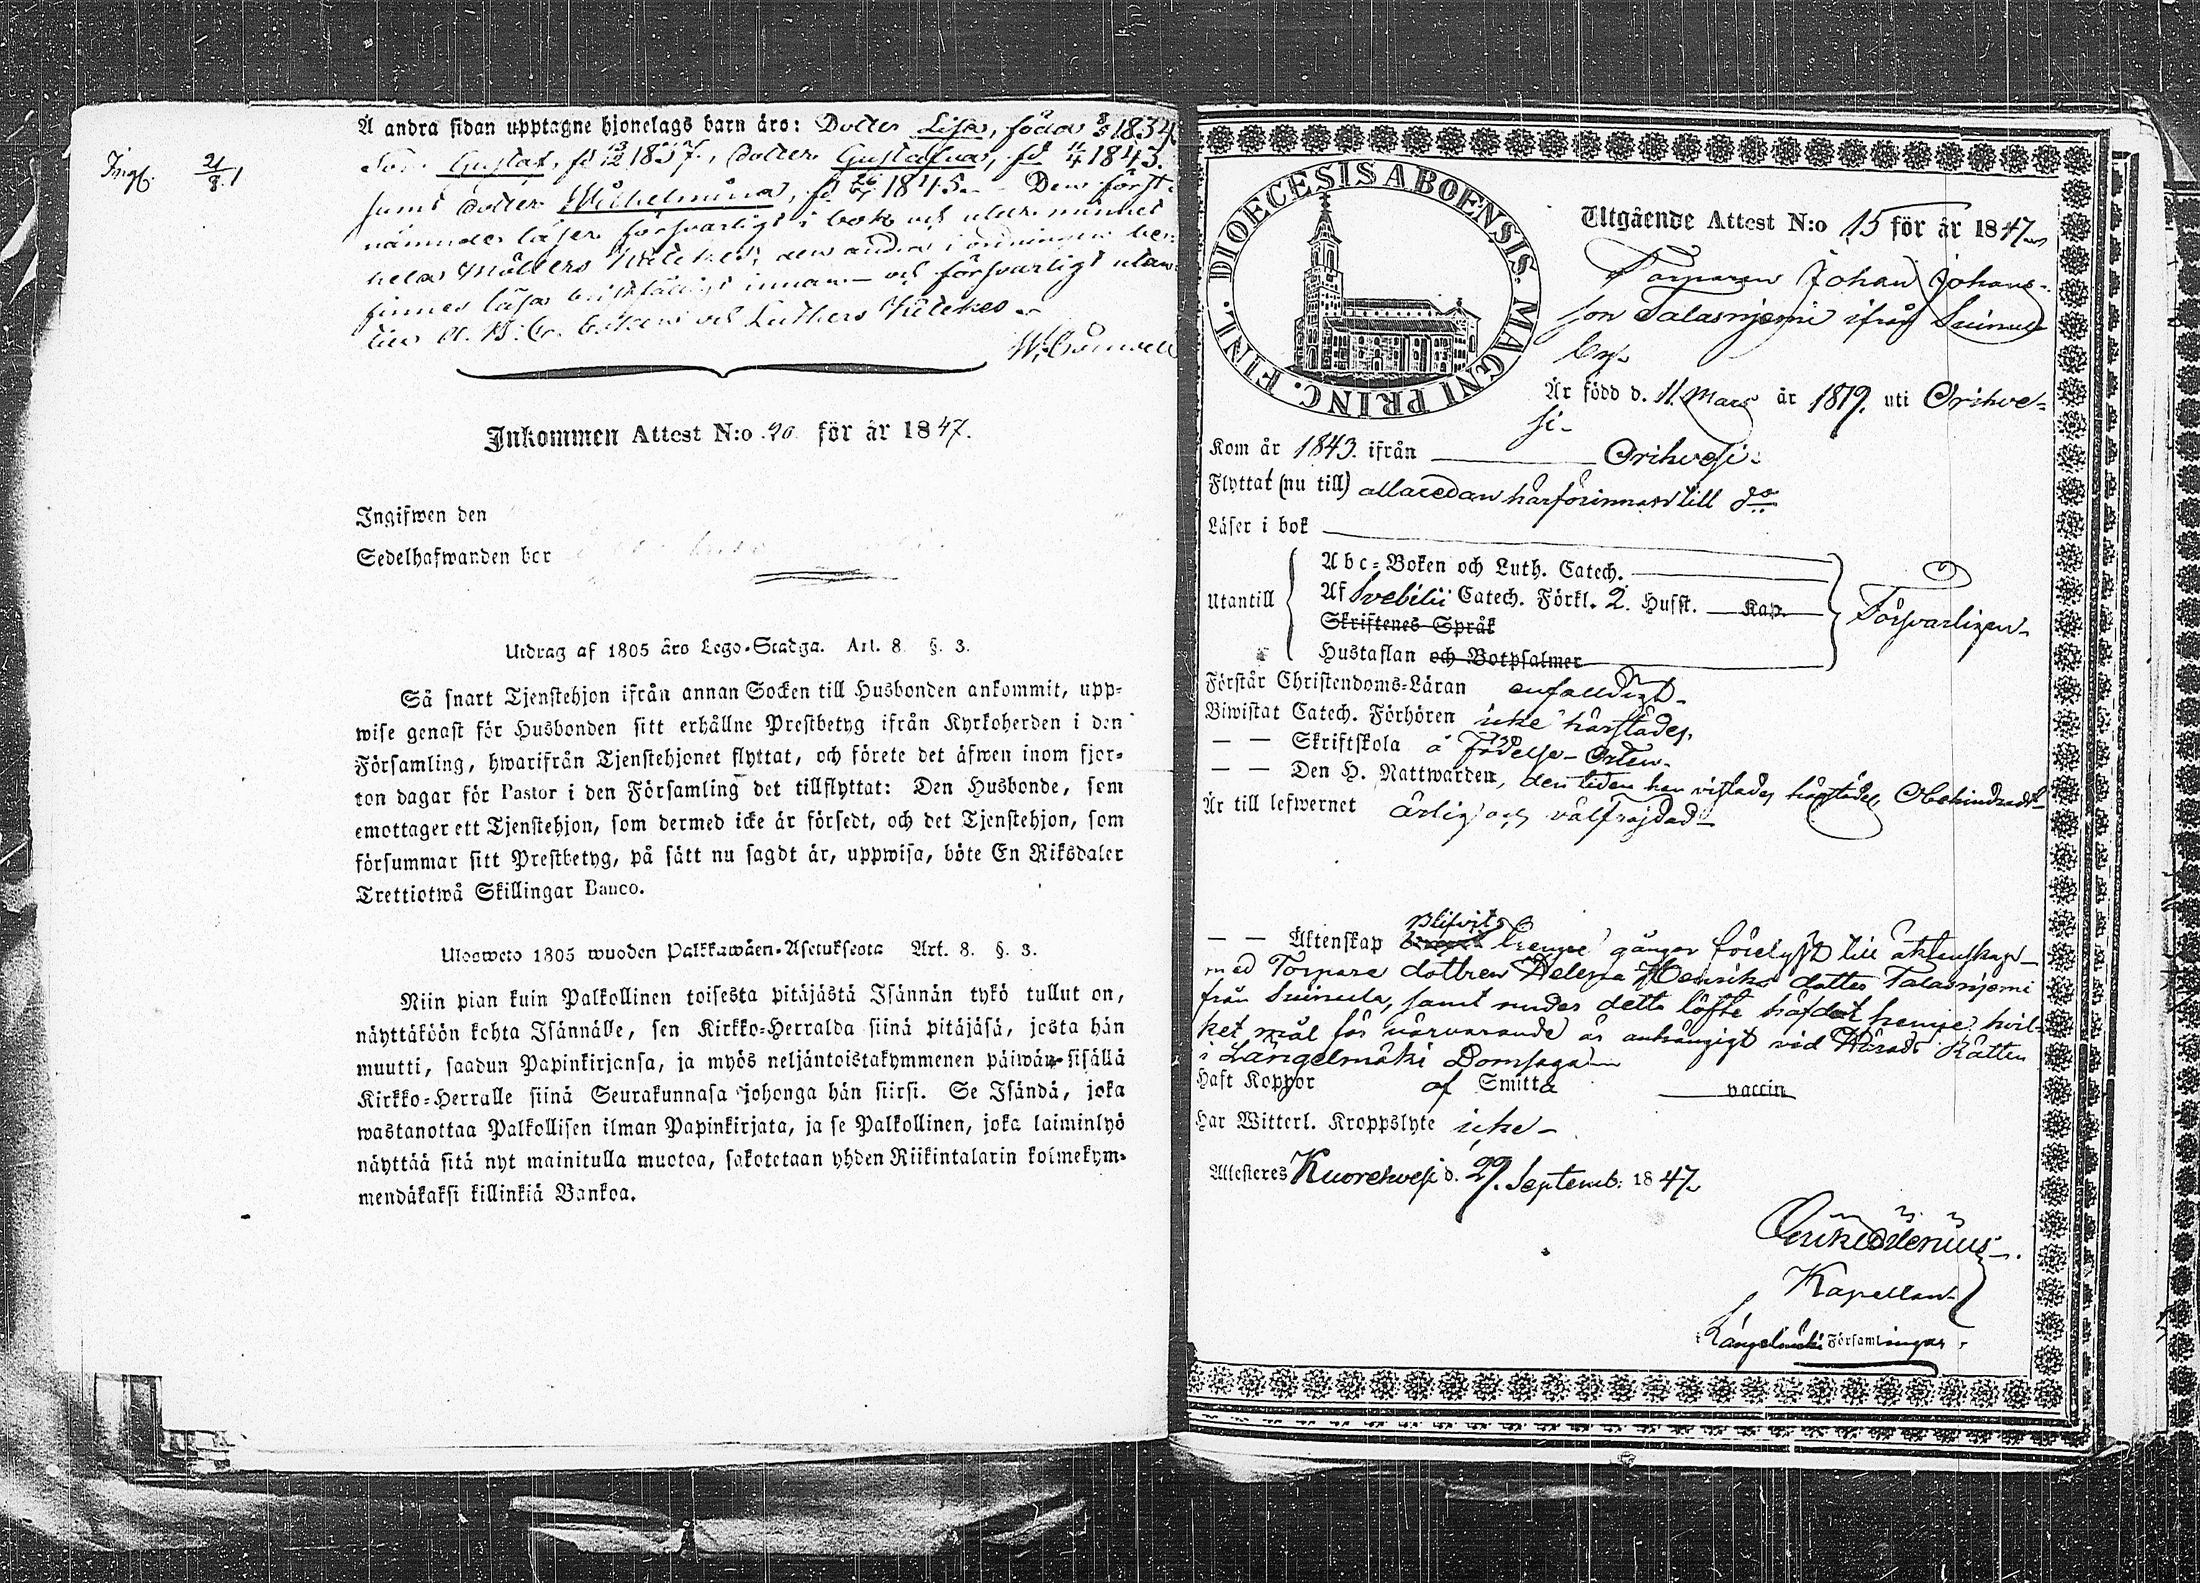 Ingf. 21/8.
Å andra sidan upptagne hjonelags barn äro: Dotter Lisa, födda 1834
Son Gustaf, fd 13/12 1837, dotter Gustafva, fd 11/4 1843.
samt dotter Wilhelmina, fd 1845. Den först
nämnda läser försvarligt i bok och
hela Möllers Kateches; den andra i ordningen be-
finnes läsa innan- och försvarligt utan-
till A. B. C. boken och Luthers Kateches
Inkommen Attest N:o 20 för år 1847.
Ingifwen den
Sedelhafwanden bor
Utdrag af 1805 års Lego-Stadga. Art. 8. §. 3.
Så snart Tjenstehjon ifrån annan Socken till Husbonden ankommit, upp-
wise genast för Husbonden sitt erhållne Prestbetyg ifrån Kyrkoherden i den
Församling, hwarifrån Tjenstehjonet flyttat, och förete det äfwen inom fjor-
ton dagar för Pastor i den Församling det tillflyttat: Den Husbonde, som
emottager ett Tjenstehjon, som dermed icke är försedt, och det Tjenstehjon, som
försummar sitt Prestbetyg, på sätt nu sagdt är, uppwisa, böte En Riksdaler
Trettiotwå Skillingar Banco.
Ulosweto 1805 wuoden Palkkawäen-Asetuksesta Art. 8. §. 3.
Niin pian kuin Palkollinen toisesta pitäjästä Isännän tykö tullut on,
näyttäköön kohta Isännälle, sen Kirkko-Herralda siinä pitäjäsä, josta hän
muutti, saadun Papinkirjansa, ja myös neljäntoistakymmenen päiwän sisällä
Kirkko-Herralle siinä Seurakunnasa johonga hän siirsi. Se Isändä, joka
wastanottaa Palkollisen ilman Papinkirjata, ja se Palkollinen, joka laiminlyö
näyttää sitä nyt mainitulla muotoa, sakotetaan yhden Riikintalarin kolmekym-
mendäkaksi killinkiä Bankoa.
DIOECESIS ABOENSIS. MAGNI PRINC. FINL.
Utgående Attest N:o 15 för år 1847
Torparen Johan Johans-
son Talasnjemi ifrån Suinula
by.
Är född d. 11. Mars år 1819. uti Orihve-
si.
Kom år 1843. ifrån Orihvesi.
Flyttat (nu till) allaredan härförinnan till do
Läser i bok
Utantill
Abc-Boken och Luth. Catech.
Af Svebilii Catech. Förkl. 2. Husst. Kap.
Skriftenes Språk
Hustaflan och Botpsalmer
Försvarligen
Förstår Christendoms-Läran enfaldigt
Biwistat Catech. Förhören icke härstädes.
— — Skriftskola å Födelse-Orten.
— — Den H. Nattwarden, den tiden han vistades härstädes Obehindradt
Är till lefwernet ärlig och välfrejdad
Blifvit
— — Äktenskap trenne gånger förelyst till äktenskap
med Torpare dottren Helena Henriks dotter Talasnjemi
från Suinula, samt under detta löfte häfdat henne, hvil-
ket mål för närvarande är anhängigt vid Härads Rätten
i Längelmäki Domsaga
Haft Koppor af Smitta vaccin
Har Witterl. Kroppslyte icke
Attesteres Kuorehvesi d. 29. Septemb. 1847.
Kapellan
i Längelmäki Församlingar